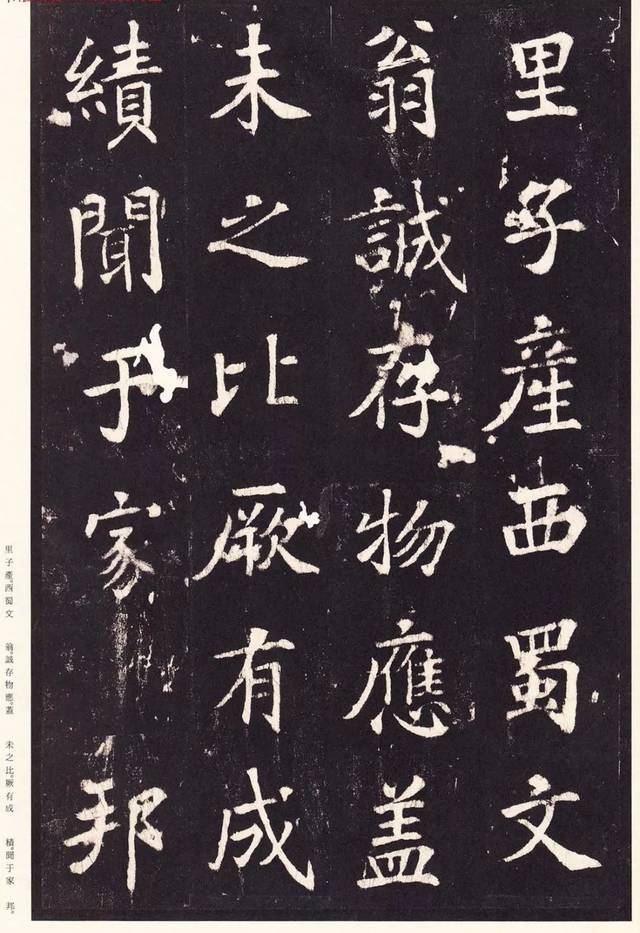 里子產西蜀文
翁誠存物應盖
未之比厥有成
績聞于家邦
里子產。西蜀文
翁。誠存物應。蓋
未之比。厥有成
績。聞于家
邦。